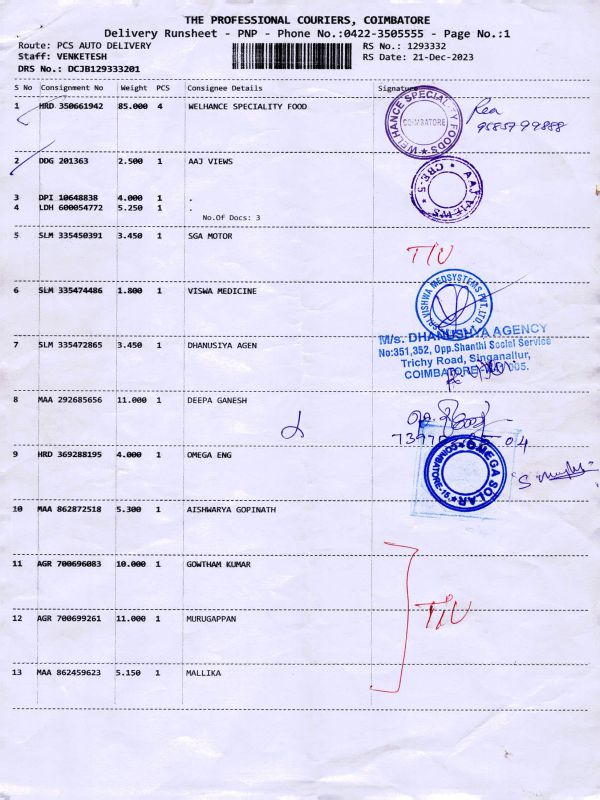 THE PROFESSIONAL COURIERS, COIMBATORE
Delivery Runsheet - PNP - Phone No.:0422-3505555 - Page No.:1
Route: PCS AUTO DELIVERY RS No.: 1293332
Staff: VENKETESH RS Date: 21-Dec-2023
DRS No.: DCJB129333201
S No Consignment No Weight PCS Consignee Details Signature
1 HRD 350661942 85.000 4 WELHANCE SPECIALITY FOOD
WELHANCE SPECIALITY FOODS
COIMBATORE
2 DDG 201363 2.500 1 AAJ VIEWS
AAJ VIEWS CBE-5
3 DPI 10648838 4.000 1 .
4 LDH 600054772 5.250 1 .
No.Of Docs: 3
5 SLM 335450391 3.450 1 SGA MOTOR
T/U
6 SLM 335474486 1.800 1 VISWA MEDICINE
SRI VISHWA MEDSYSTEMS PVT. LTD.
7 SLM 335472865 3.450 1 DHANUSIYA AGEN
M/s. DHANUSIYA AGENCY
No:351,352, Opp.Shanthi Social Service
Trichy Road, Singanallur,
COIMBATORE 005.
8 MAA 292685656 11.000 1 DEEPA GANESH
9 HRD 369288195 4.000 1 OMEGA ENG
OMEGA SOLAR
COIMBATORE-15
10 MAA 862872518 5.300 1 AISHWARYA GOPINATH
11 AGR 700696083 10.000 1 GOWTHAM KUMAR
12 AGR 700699261 11.000 1 MURUGAPPAN
T/U
13 MAA 862459623 5.150 1 MALLIKA